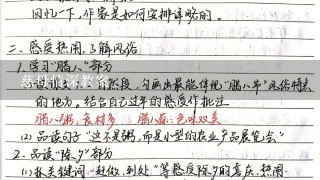 回忆一下,作家是如何安排详略的。
二、感受热闹,了解风俗
1.学习“腊八”部分
自然段,勾画出最能体现“腊八节”风俗特点
的地方。结合自己过年的感受作批注
腊八粥:食材多 腊八蒜:色味双美
(2)品读句子“这不是粥,而是小型的农业产品展览会”
2.品读“除夕”部分
(1)抓关键词“赶做,到处”等感受除夕的喜庆、热闹
慈母情深教